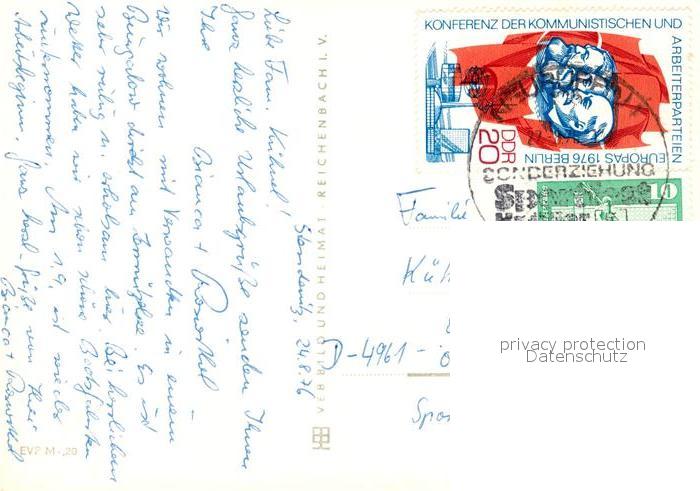 Standenitz, 24.8.76
Liebe Fam. Kühnel!
Ganz herzliche Urlaubsgrüße senden Ihnen
Ihre
Bianca +
Wir wohnen mit Verwandten in einem
Bungalow direkt am Es ist
sehr ruhig u. erholsam hier. Bei herrlichem
Wetter haben wir schon schöne Bootsfahrten
unternommen. Am 1.9. ist wieder
Arbeitsbeginn. Ganz herzl. Grüße von Ihrer
Bianca +
EVP M -,20
VERLAG BILD UND HEIMAT REICHENBACH I. V.
KONFERENZ DER KOMMUNISTISCHEN UND
ARBEITERPARTEIEN
EUROPAS 1976 BERLIN
DDR
20
SONDERZIEHUNG
10
Familie
Küh
D-4961 -
privacy protection
Datenschutz